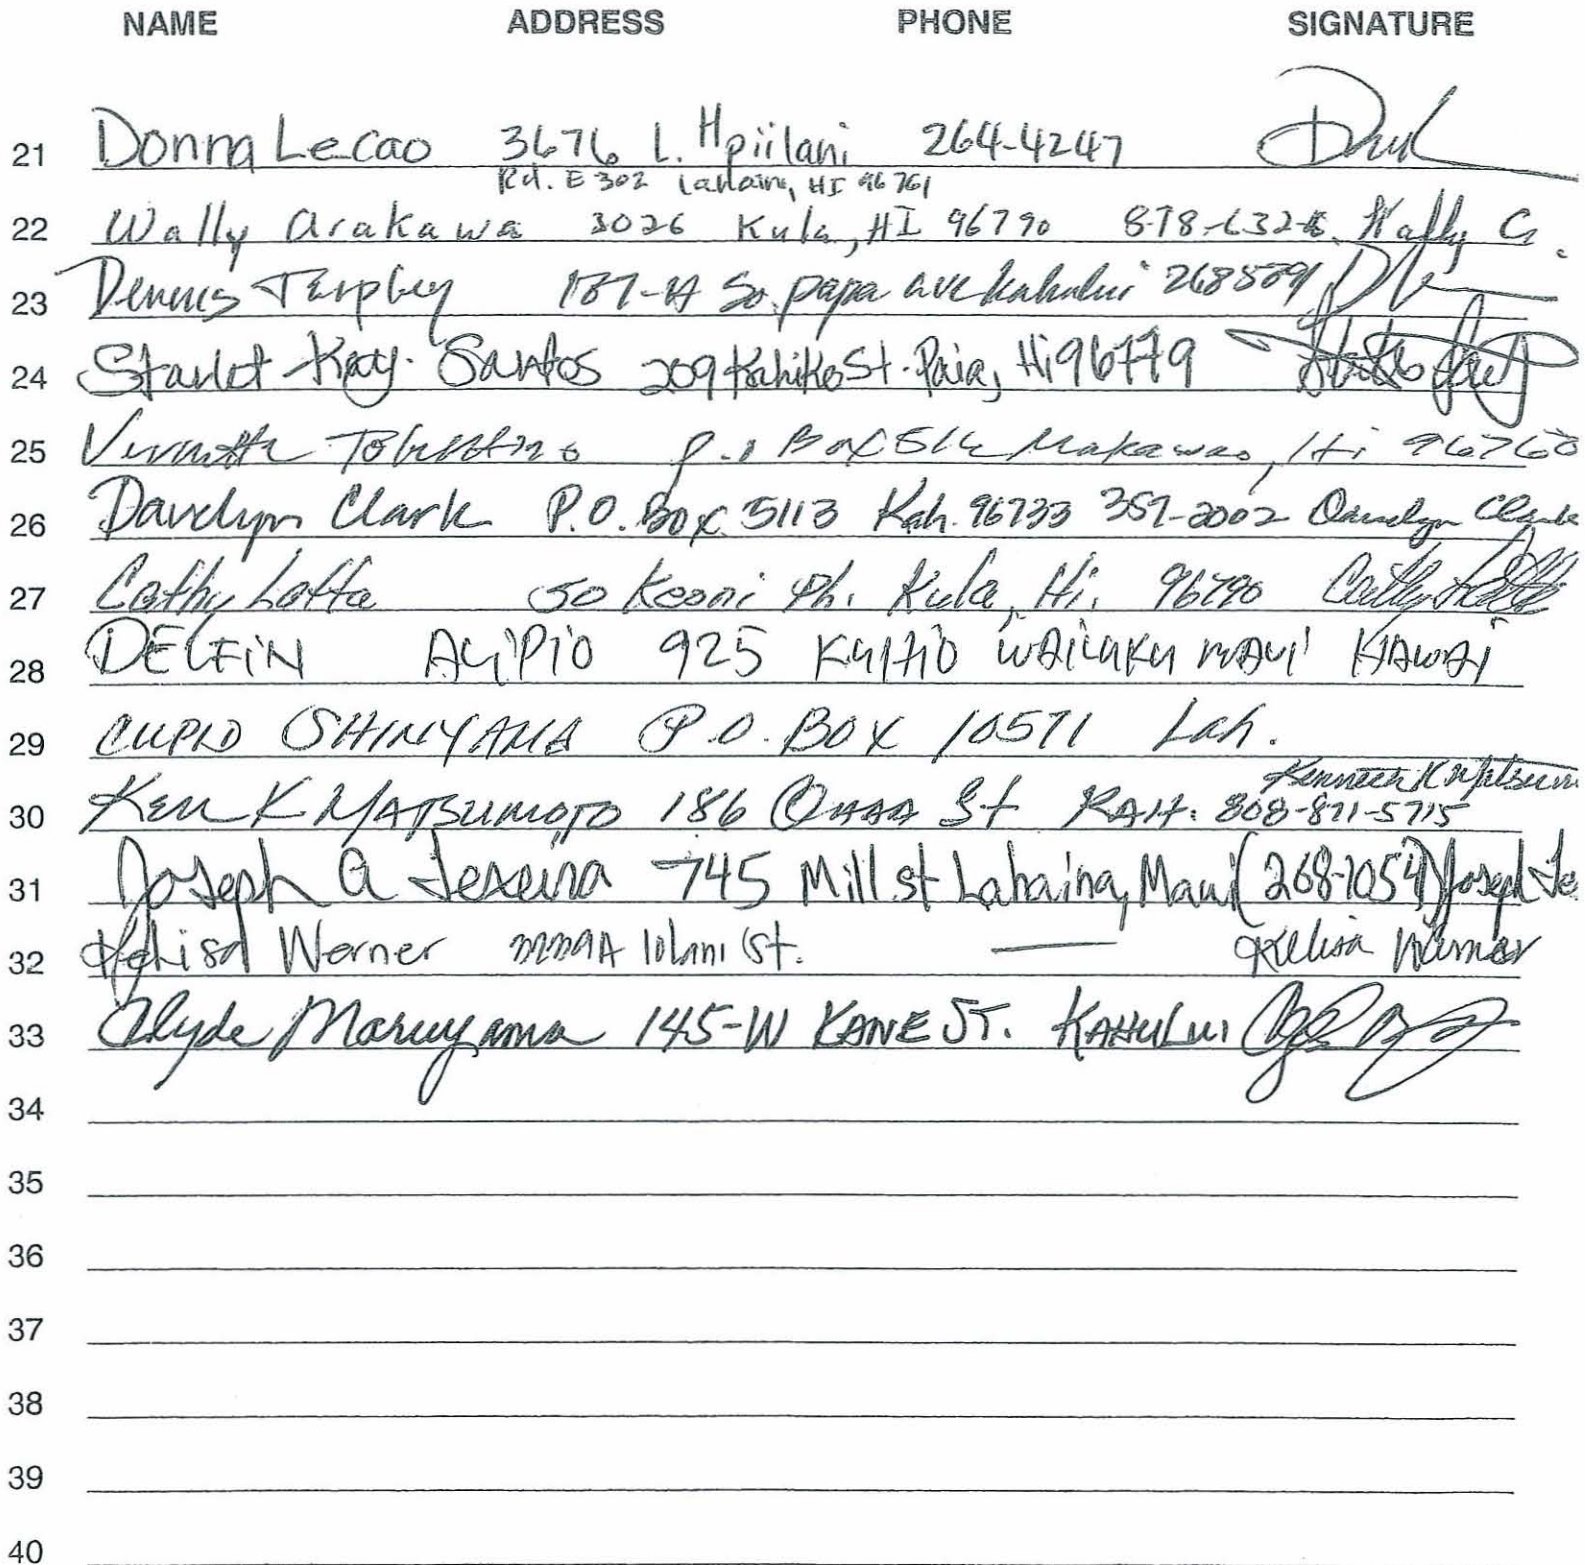 NAME ADDRESS PHONE SIGNATURE
21 Donna Lecao 3676 L. Hpiilani 264-4247
Rd. E 302 Lahaina, HI 96761
22 Wally Arakawa 3026 Kula, HI 96790 878-632 Wally
23 Dennis 187-A So. papa ave kahului
24 Starlet Kay Santos 209 Kahiko St. Paia, Hi 96779
25 P.O Box Makawao, Hi 96768
26 Davelyn Clark P.O. Box 5113 Kah. 96733 357-2002 Davelyn Clark
27 Cathy Lotta 50 Keoni Pl. Kula, Hi. 96790 Cathy
28 DELFIN AGIPIO 925 KUHIO WAILUKU MAUI HAWAI
29 CUPID OSHINYAMA P.O. BOX 10571 Lah.
Kenneth K
30 Ken K MATSUMOTO 186 St KAH. 808-871-5715
31 Joseph A Texeira 745 Mill st Lahaina, Maui (268-7054) Joseph Te
32 Kelisa Werner Iolani St. — Kelisa Werner
33 Clyde Maruyama 145-W KANE ST. KAHULUI
34
35
36
37
38
39
40